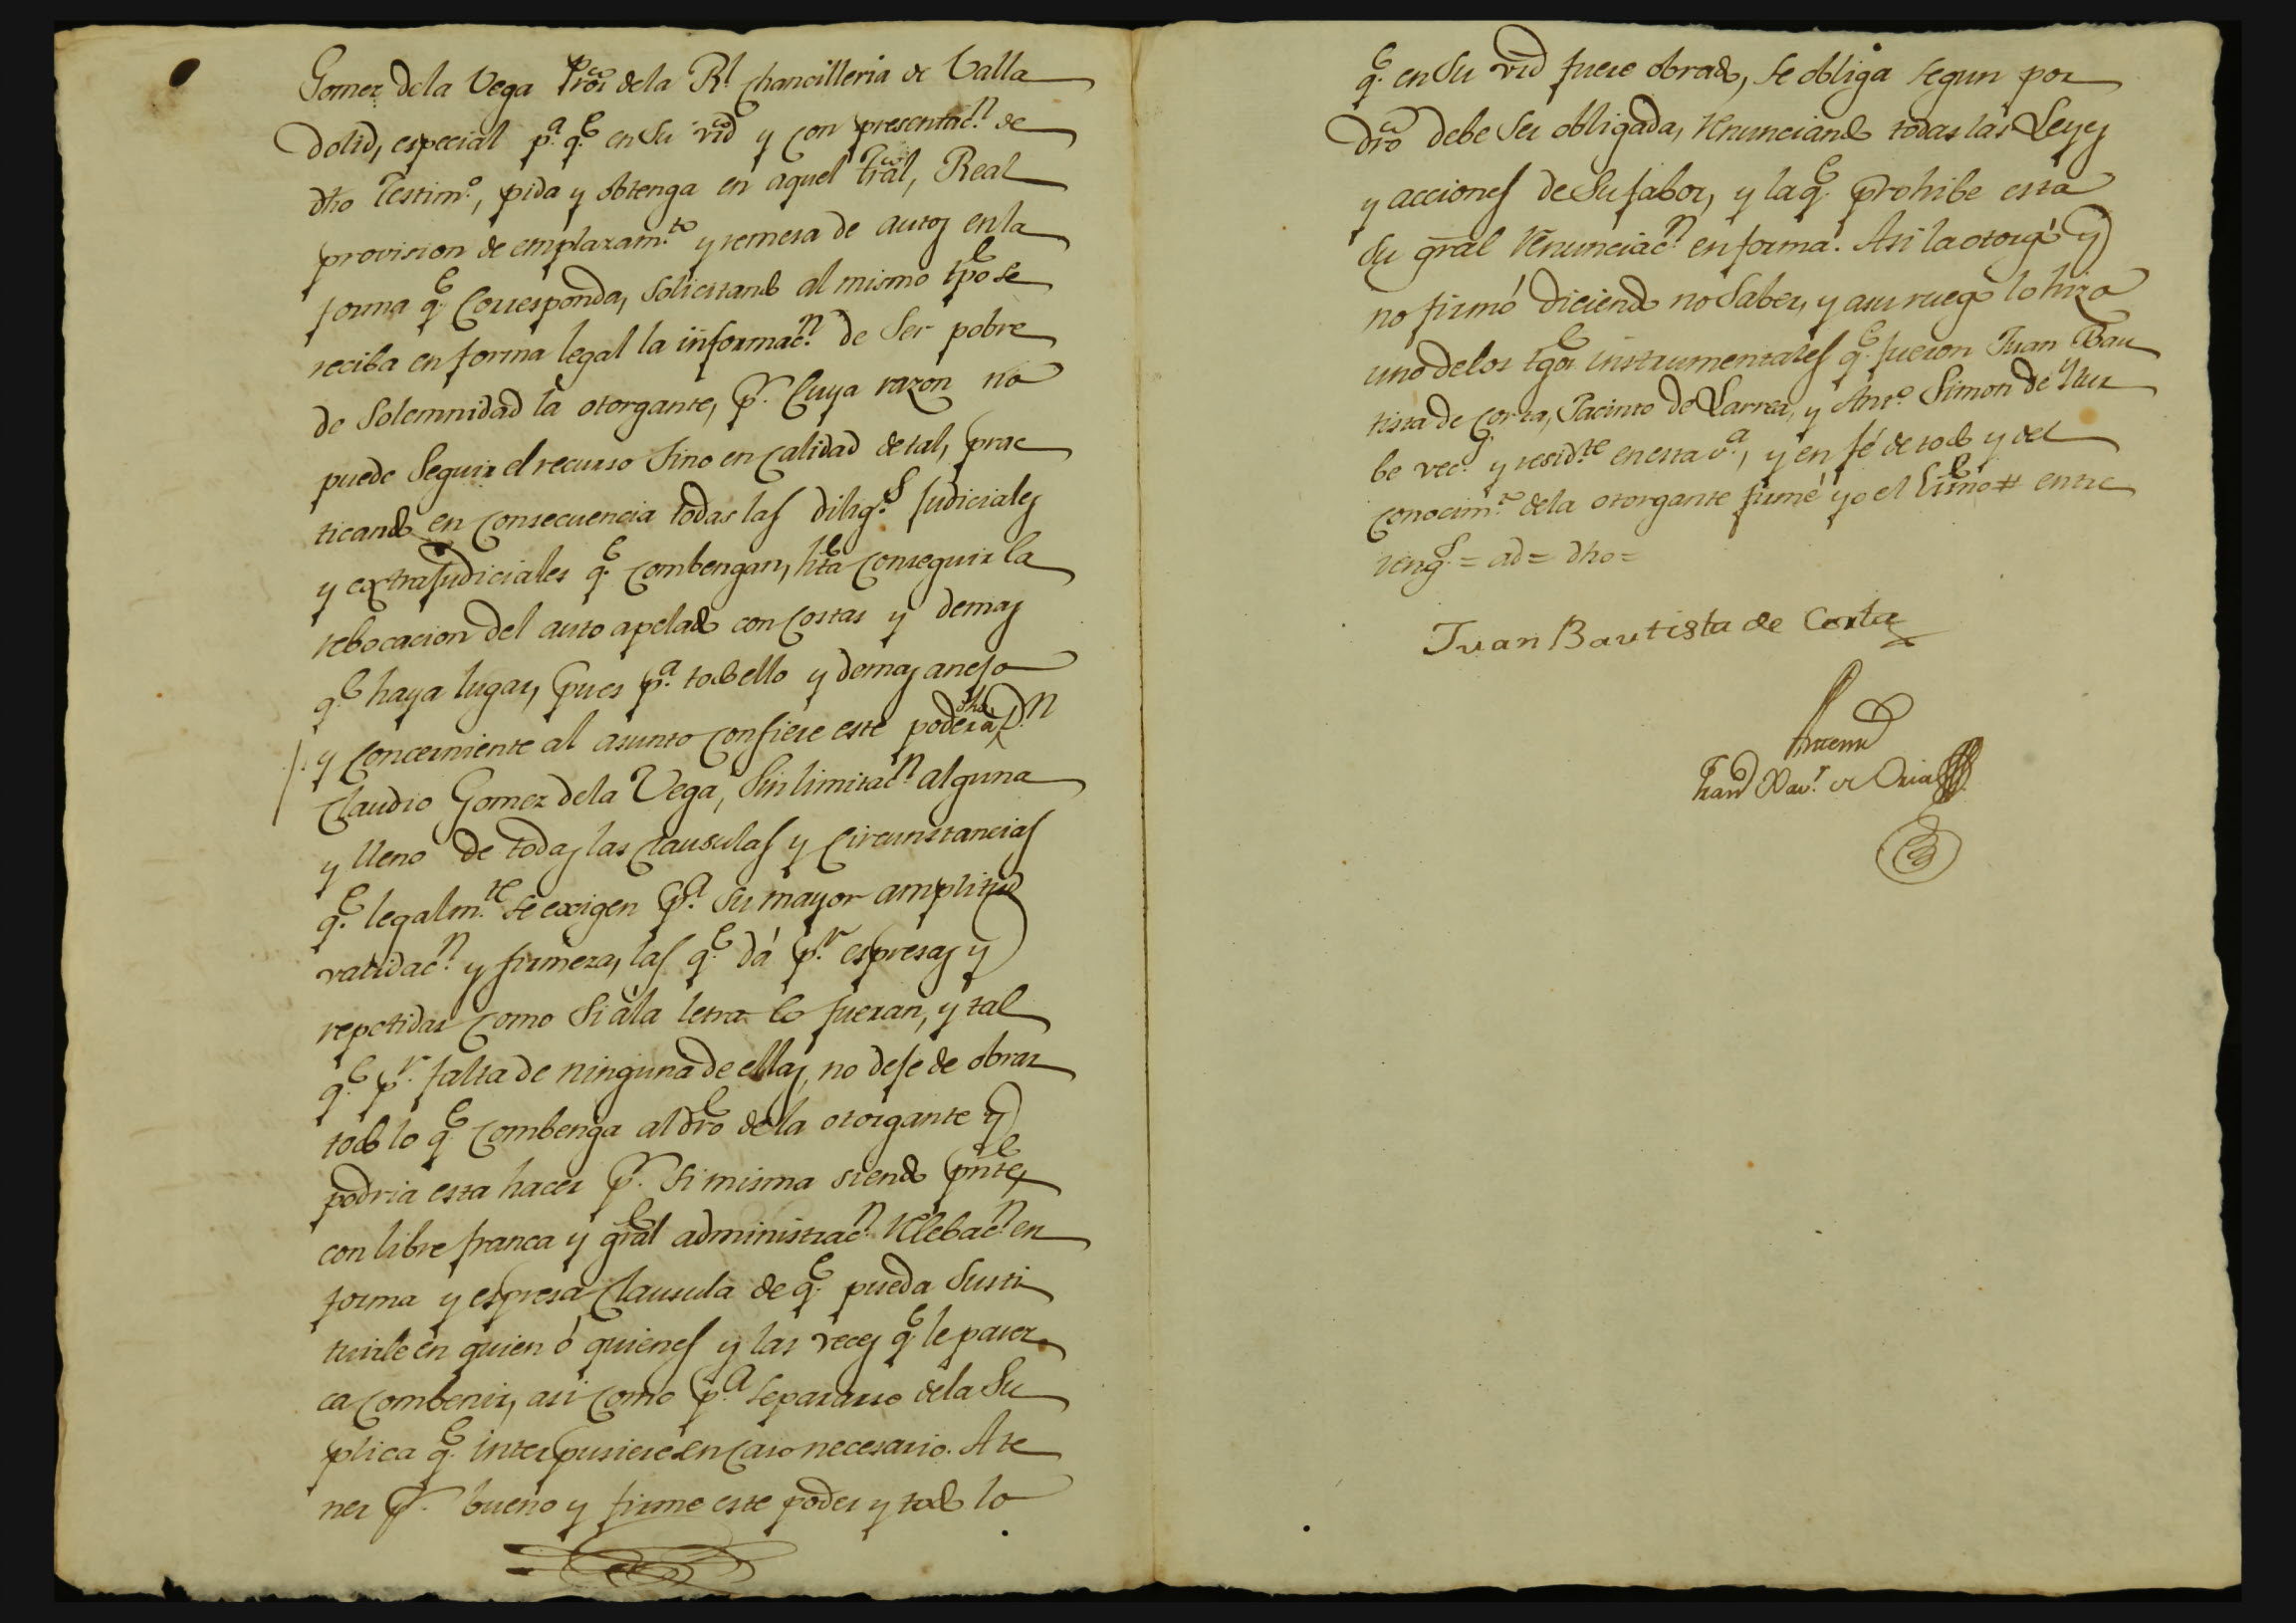 Gomez dela Vega Pror dela Rl Chancilleria de Valla
dolid, especial pa. qe. en su vrd y con presentacn. de
dho Testimo., pida y obtenga en aquel tral, Real
provision de emplazamto. y remesa de autos en la
forma qe. Corresponda, solicitando al mismo tpo se
reciba en forma legal la informacn. de Ser pobre
de Solemnidad la otorgante, pr. Cuya razon no
puede Seguir el recurso Sino en calidad de tal, prac
ticando en consecuencia todas las diligs. Judiciales
y extrajudiciales qe. combengan, hta conseguir la
rebocacion del auto apelado con costas y demas
qe haya lugar, pues pa. todo ello y demas anejo
y Concerniente al asunto confiere este poder a dho Dn.
Claudio Gomez dela Vega, Sin limitacn. alguna
y lleno de todas las clausulas y circunstancias
qe. legalmte. se exigen pa. su mayor amplitud
validacn. y firmeza, las qe. dá pr. espresas y
repetidas como Si ála letra lo fueran, y tal
qe. pr. falta de ninguna de ellas, no deje de obrar
todo lo qe. combenga al dro de la otorgante y
podria esta hacer pr. Si misma siendo pnte,
con libre franca y gral administracn. relebacn. en
forma y espresa Clausula de qe. pueda Susti
tuirle en quien ó quienes y las veces qe. le parez
ca combenir, asi como pa. separarse dela Su
plica qe. interpusiere en caso necesario. A te
ner pr. bueno y firme este poder y todo lo
qe. en su vrd fuere obrado, se obliga segun por
dro debe ser obligada, renunciando todas las Leyes
y acciones de Su fabor, y la qe. prohibe esta
su gral renunciacn. en forma. Asi la otorgó y
no firmó diciendo no Saber, y a su ruego lo hizo
uno de los tgos instrumentales qe. fueron Juan Bau
tista de Corta, Jacinto de Larrea, y Anto. Simon de Ytur
be veco. y residte. en esta va., y en fé de todo y del
conocimto. dela otorgante firmé yo el Esno # entre
rengs. = ad = dho =
Juan Bautista de Corta
Antemi